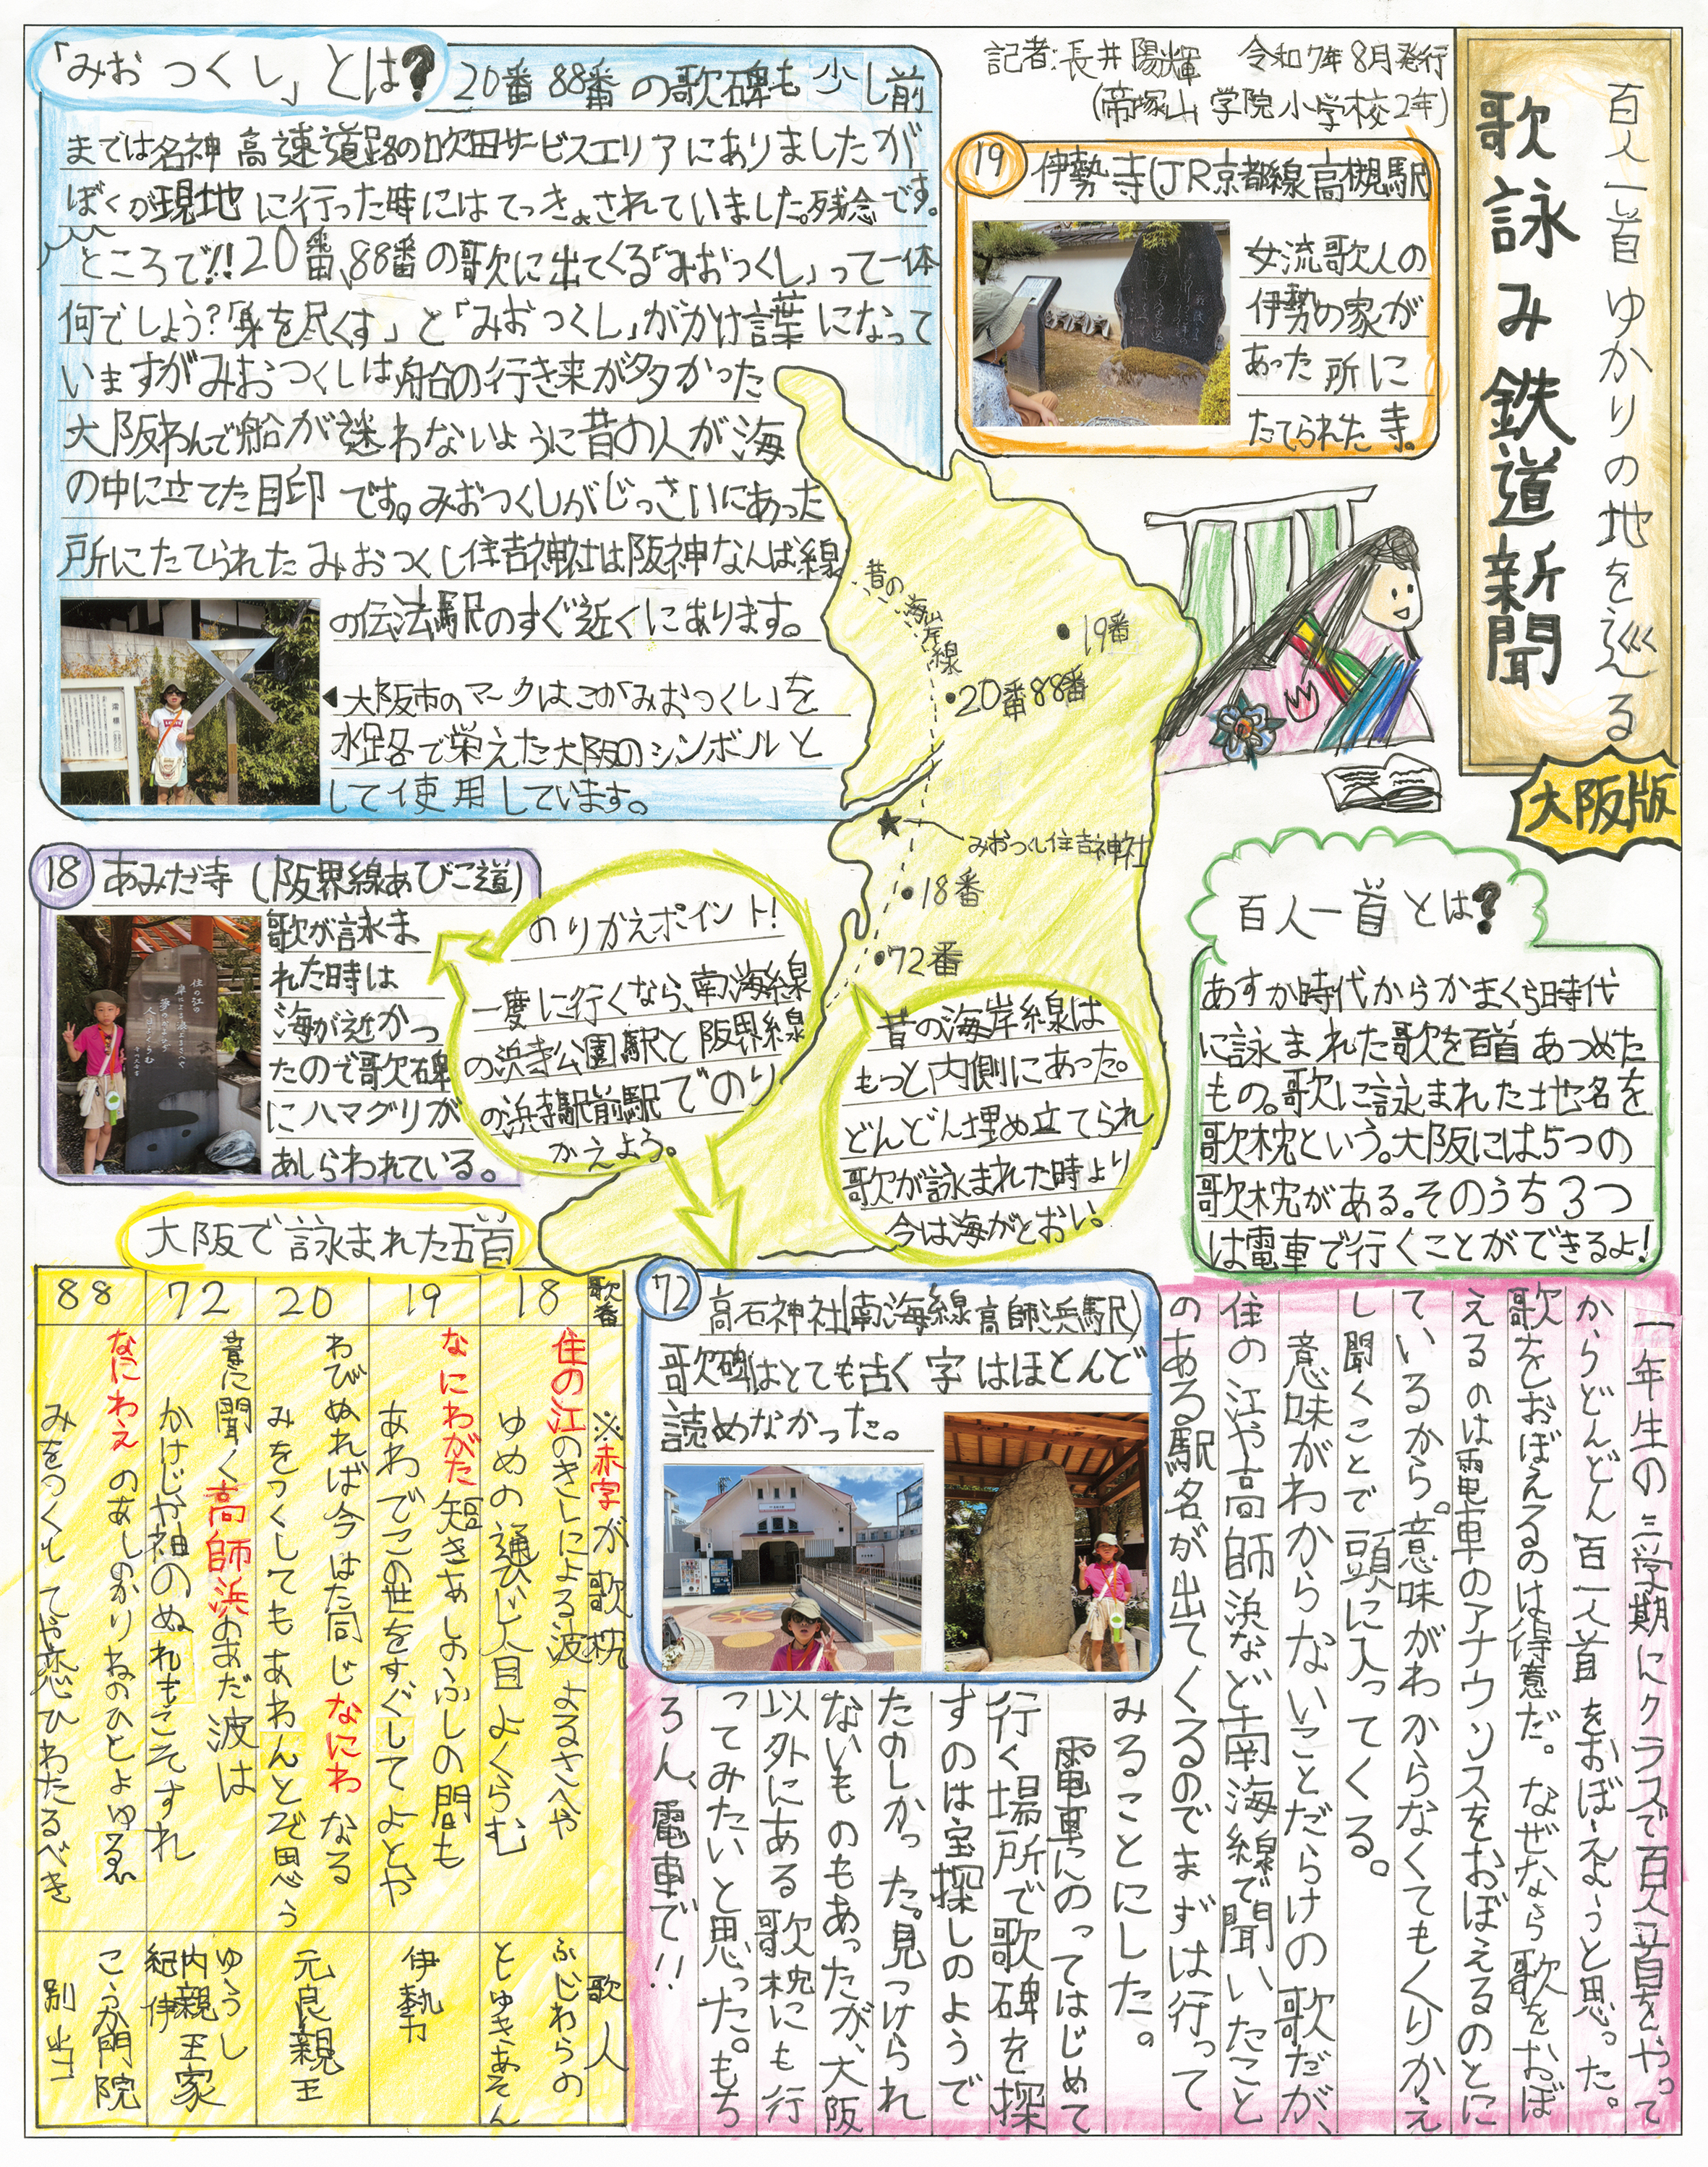 百人一首ゆかりの地を巡る
歌詠み鉄道新聞
大阪版
記者:長井陽輝 令和7年8月発行
(帝塚山学院小学校2年)
「みおつくし」とは?
20番88番の歌碑も少し前
までは名神高速道路の吹田サービスエリアにありましたが
ぼくが現地に行った時にはてっきょされていました。残念です。
ところで!!20番、88番の歌に出てくる「みおつくし」って一体
何でしょう?「身を尽くす」と「みおつくし」がかけ言葉になって
いますがみおつくしは船の行き来が多かった
大阪わんで船が迷わないように昔の人が海
の中に立てた目印です。みおつくしがじっさいにあった
所にたてられたみおつくし住吉神社は阪神なんば線
の伝法駅のすぐ近くにあります。
◀大阪市のマークはこの「みおつくし」を
水路で栄えた大阪のシンボルと
して使用しています。
19 伊勢寺(JR京都線高槻駅)
女流歌人の
伊勢の家が
あった所に
たてられた寺。
昔の海岸線
19番
20番88番
みおつくし住吉神社
18番
72番
18 あみだ寺(阪界線あびこ道)
歌が詠ま
れた時は
海が近かっ
たので歌碑
にハマグリが
あしらわれている。
住の江の
岸による波よるさへや
夢の通ひ路
人目よくらむ
澪標
のりかえポイント!
一度に行くなら、南海線
の浜寺公園駅と阪界線
の浜寺駅前駅でのり
かえよう。
昔の海岸線は
もっと内側にあった。
どんどん埋め立てられ
歌が詠まれた時より
今は海がとおい。
百人一首とは?
あすか時代からかまくら時代
に詠まれた歌を百首あつめた
もの。歌に詠まれた地名を
歌枕という。大阪には5つの
歌枕がある。そのうち3つ
は電車で行くことができるよ!
72 高石神社(南海線高師浜駅)
歌碑はとても古く字はほとんど
読めなかった。
一年生の三学期にクラスで百人一首をやって
からどんどん百人一首をおぼえようと思った。
歌をおぼえるのは得意だ。なぜなら歌をおぼ
えるのは電車のアナウンスをおぼえるのとに
ているから。意味がわからなくてもくりかえ
し聞くことで頭に入ってくる。
意味がわからないことだらけの歌だが、
住の江や高師浜など南海線で聞いたこと
のある駅名が出てくるのでまずは行って
みることにした。
電車にのってはじめて
行く場所で歌碑を探
すのは宝探しのようで
たのしかった。見つけられ
ないものもあったが、大阪
以外にある歌枕にも行
ってみたいと思った。もち
ろん、電車で!!
大阪で詠まれた五首
歌番
※赤字が歌枕
歌人
18
住の江のきしによる波よるさへや
ゆめの通ひじ人目よくらむ
ふじわらの
としゆきあそん
19
なにわがた短きあしのふしの間も
あわでこの世をすぐしてよとや
伊勢
20
わびぬれば今はた同じなにわなる
みをつくしてもあわんとぞ思う
元良親王
72
音に聞く高師浜のあだ波は
かけじや袖のぬれもこそすれ
ゆうし
内親王家
紀伊
88
なにわえのあしのかりねのひとよゆゑ
みをつくしてや恋ひわたるべき
こうか門院
別当